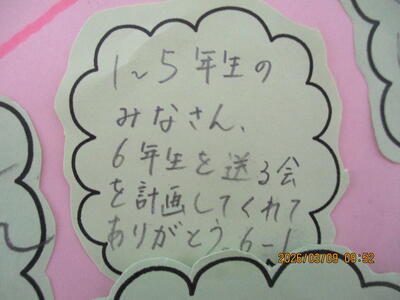 1～5年生の
みなさん、
6年生を送る会
を計画してくれて
ありがとう。6-1
2026/03/09 09:52